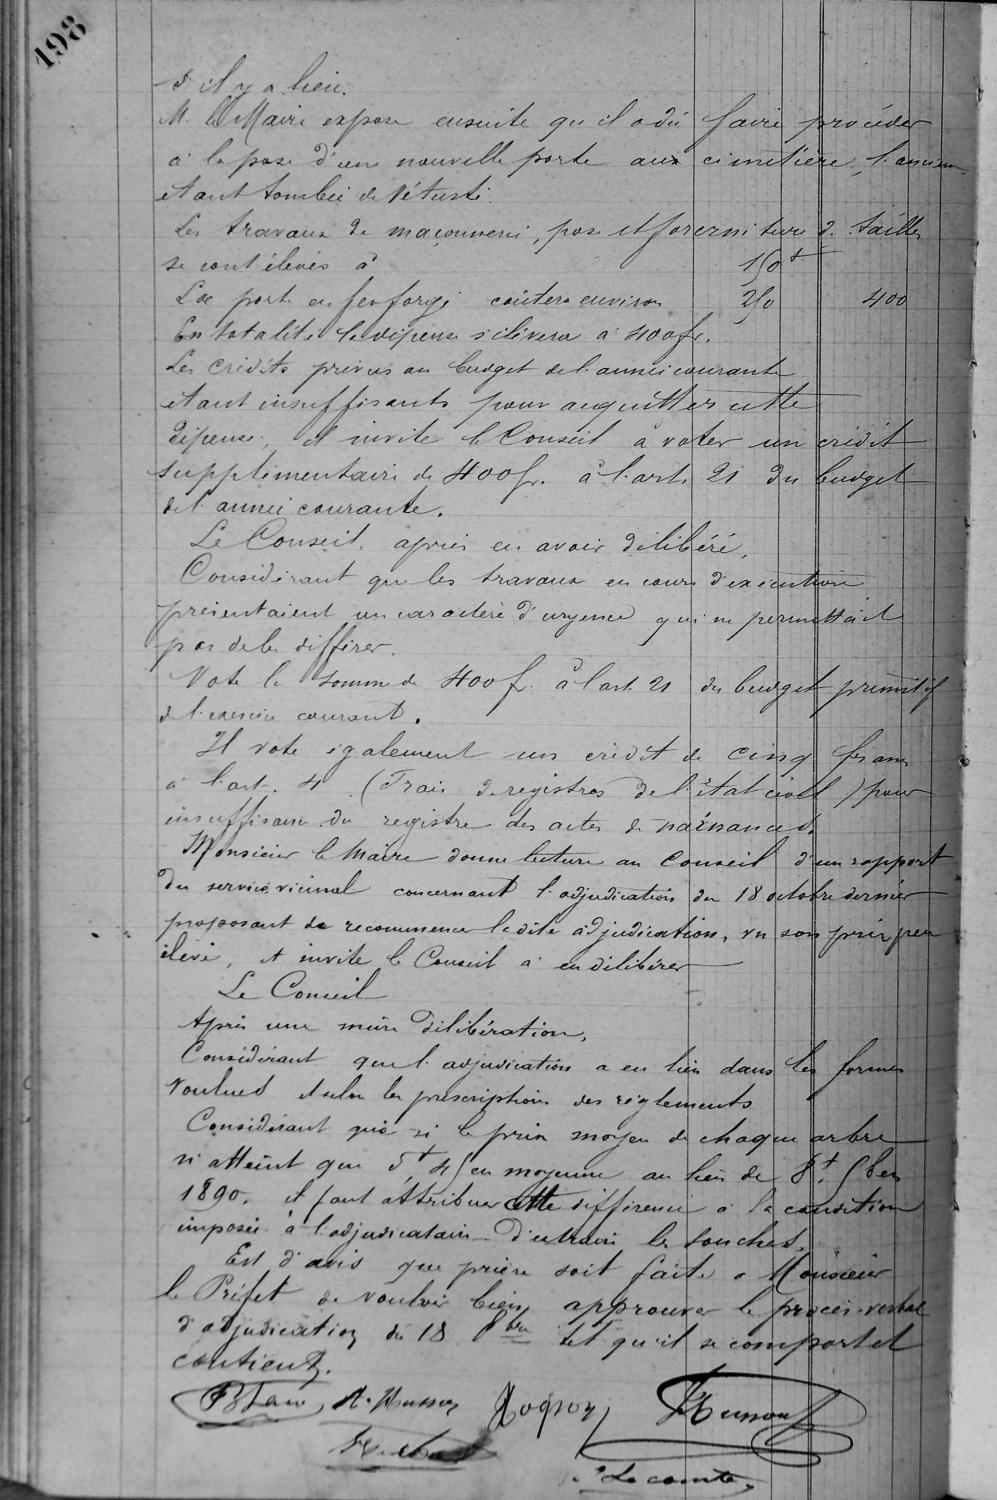 198
s'il y a lieu.
M. le Maire expose ensuite qu'il a dû faire procéder
à la pose d'une nouvelle porte aux cimetière, l'ancienne
étant tombée de Vétusté.
Les travaux de maçonnerie, pose et forerniture de tailles
se sont élevés à 150f
La porte en fer forgé coûtera environ 250 400
En totalité la dépense s'élèvera à 400 fr.
Les crédits prévus au budget de l'année courante
étant insuffisants pour acquitter cette
dépense, il invite le Conseil à voter un crédit
supplémentaire de 400 fr. à l'art. 21 du budget
de l'année courante.
Le Conseil, après en avoir délibéré,
Considérant que les travaux en cours d'exécution
présentaient un caractère d'urgence qui ne permettait
pas de les différer.
Vote la somme de 400 fr. à l'art. 21 du budget primitif
de l'exercice courant.
Il vote également un crédit de cinq francs
à l'art. 4 (Frais de registres de l'état civil) pour
insuffisance du registre des actes de naissances.
Monsieur le Maire donne lecture au Conseil d'un rapport
du service vicinal concernant l'adjudication du 18 octobre dernier
proposant de recommencer la dite adjudication, vu son prix peu
élevé, et invite le Conseil à en délibérer
Le Conseil
Après une mûre délibération,
Considérant que l'adjudication a eu lieu dans les formes
Voulues et selon les prescriptions des règlements
Considérant que si le prix moyen de chaque arbre
n'atteint que 5f 45 en moyenne au lieu de 8f. 56 en
1890, il faut attribuer cette différence à la condition
imposée à l'adjudicataire d'extraire les souches.
Est d'avis que prière soit faite à Monsieur
le Préfet de vouloir bien approuver le procès-verbal
d'adjudication du 18 8bre tel qu'il se comporte et
contient.
A. Husson Husson
Lecomte